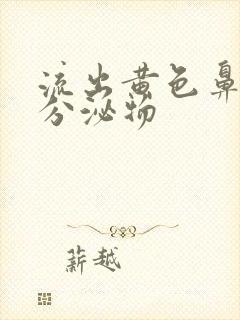 流出黄色鼻
分泌物
薪越